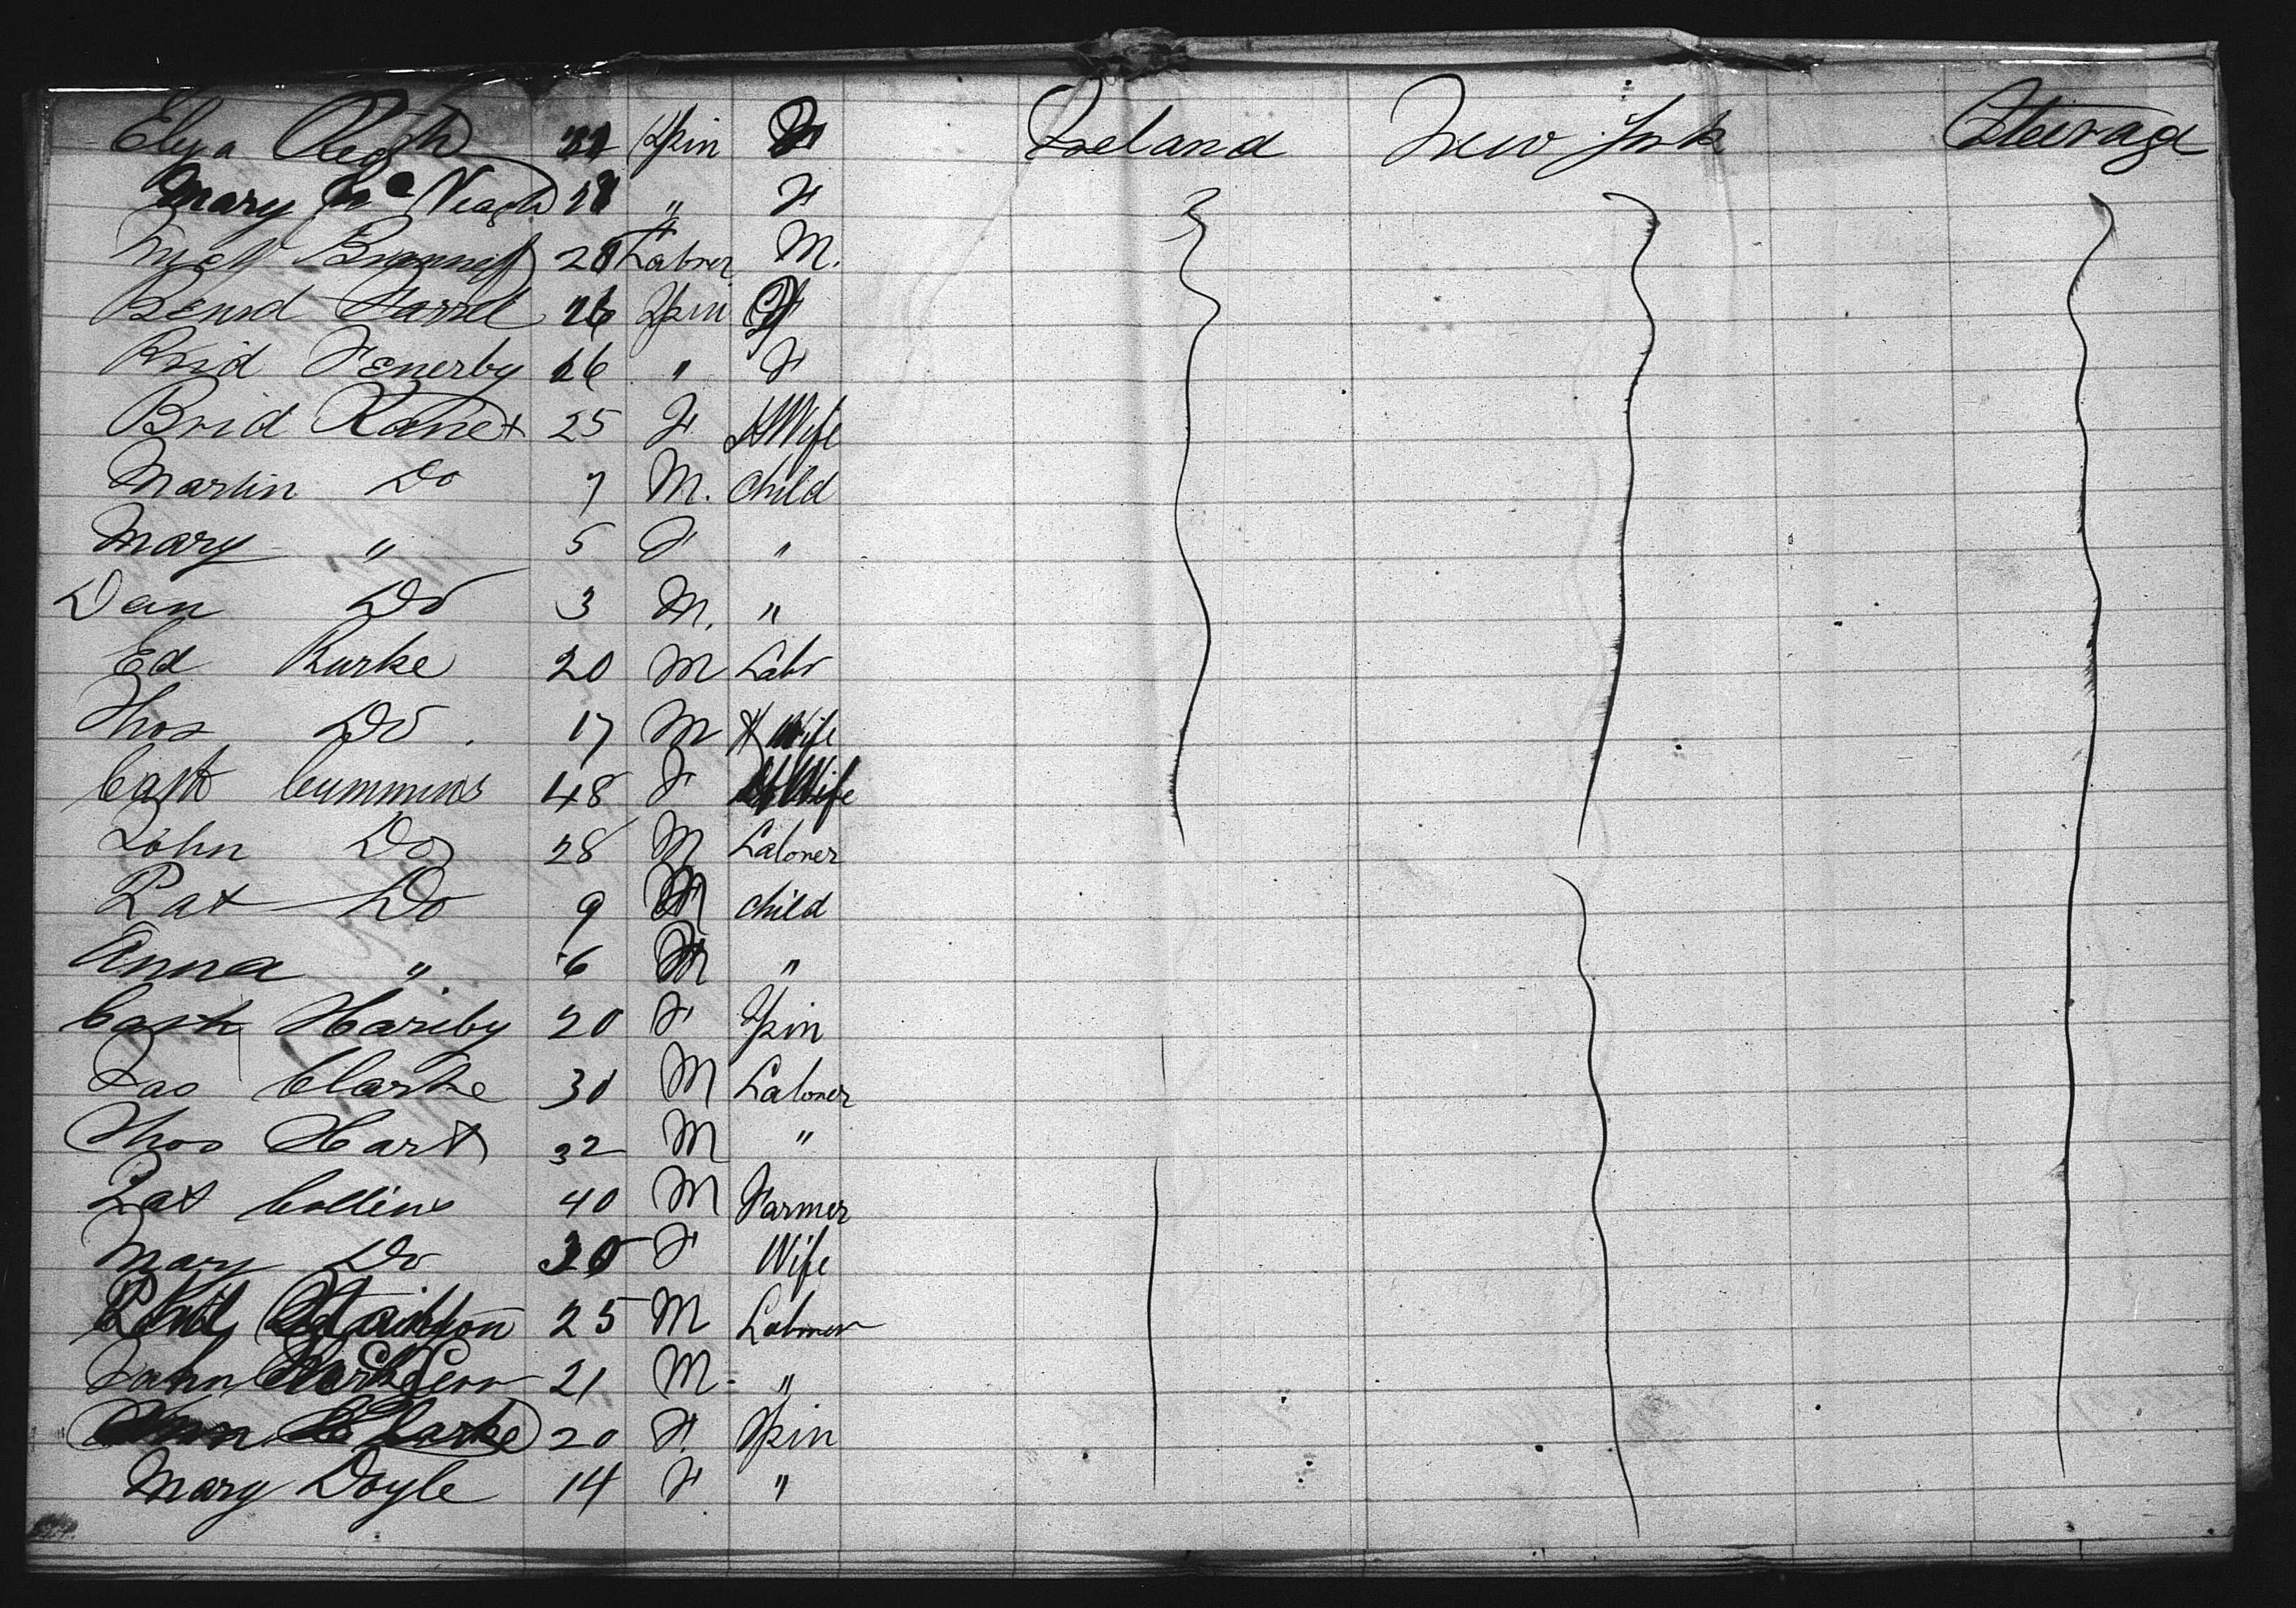 Eliza 22 Spin F Ireland New York Steerage
Mary Mc Veagh 21 " F
20 Laborer M.
Farrel 26 Spin F
Brid Fenerby 16 " F
Brid Kane 25 F H Wife
Martin Do 7 M. Child
Mary " 5 F "
Dan Do 3 M. "
Ed Burke 20 M Labr
Thos Do 17 M H Wife
Cath Cummins 48 F H Wife
John Do 28 M Laborer
Pat Do 9 M child
Anna " 6 F "
Cath Hariby 20 F Spin
Jas Clarke 30 M Laborer
Thos Hart 32 M "
Pat Collins 40 M Farmer
Mary Do 30 F Wife
25 M Laborer
John 21 M "
Ann Clarke 20 F. Spin
Mary Doyle 14 F "